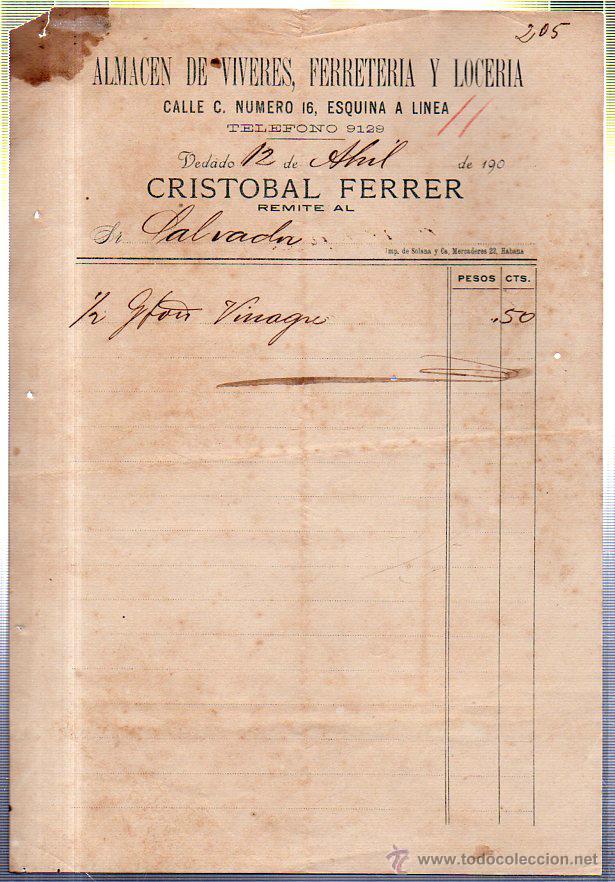 205
ALMACEN DE VIVERES, FERRETERIA Y LOCERIA
CALLE C. NUMERO 16, ESQUINA A LINEA
11
TELEFONO 9129
Vedado 12 de Abril de 190
CRISTOBAL FERRER
REMITE AL
Sr Salvador
Imp. de Solana y Ca, Mercaderes 22, Habana
PESOS CTS.
1/2 Vinagre .50
www.todocoleccion.net